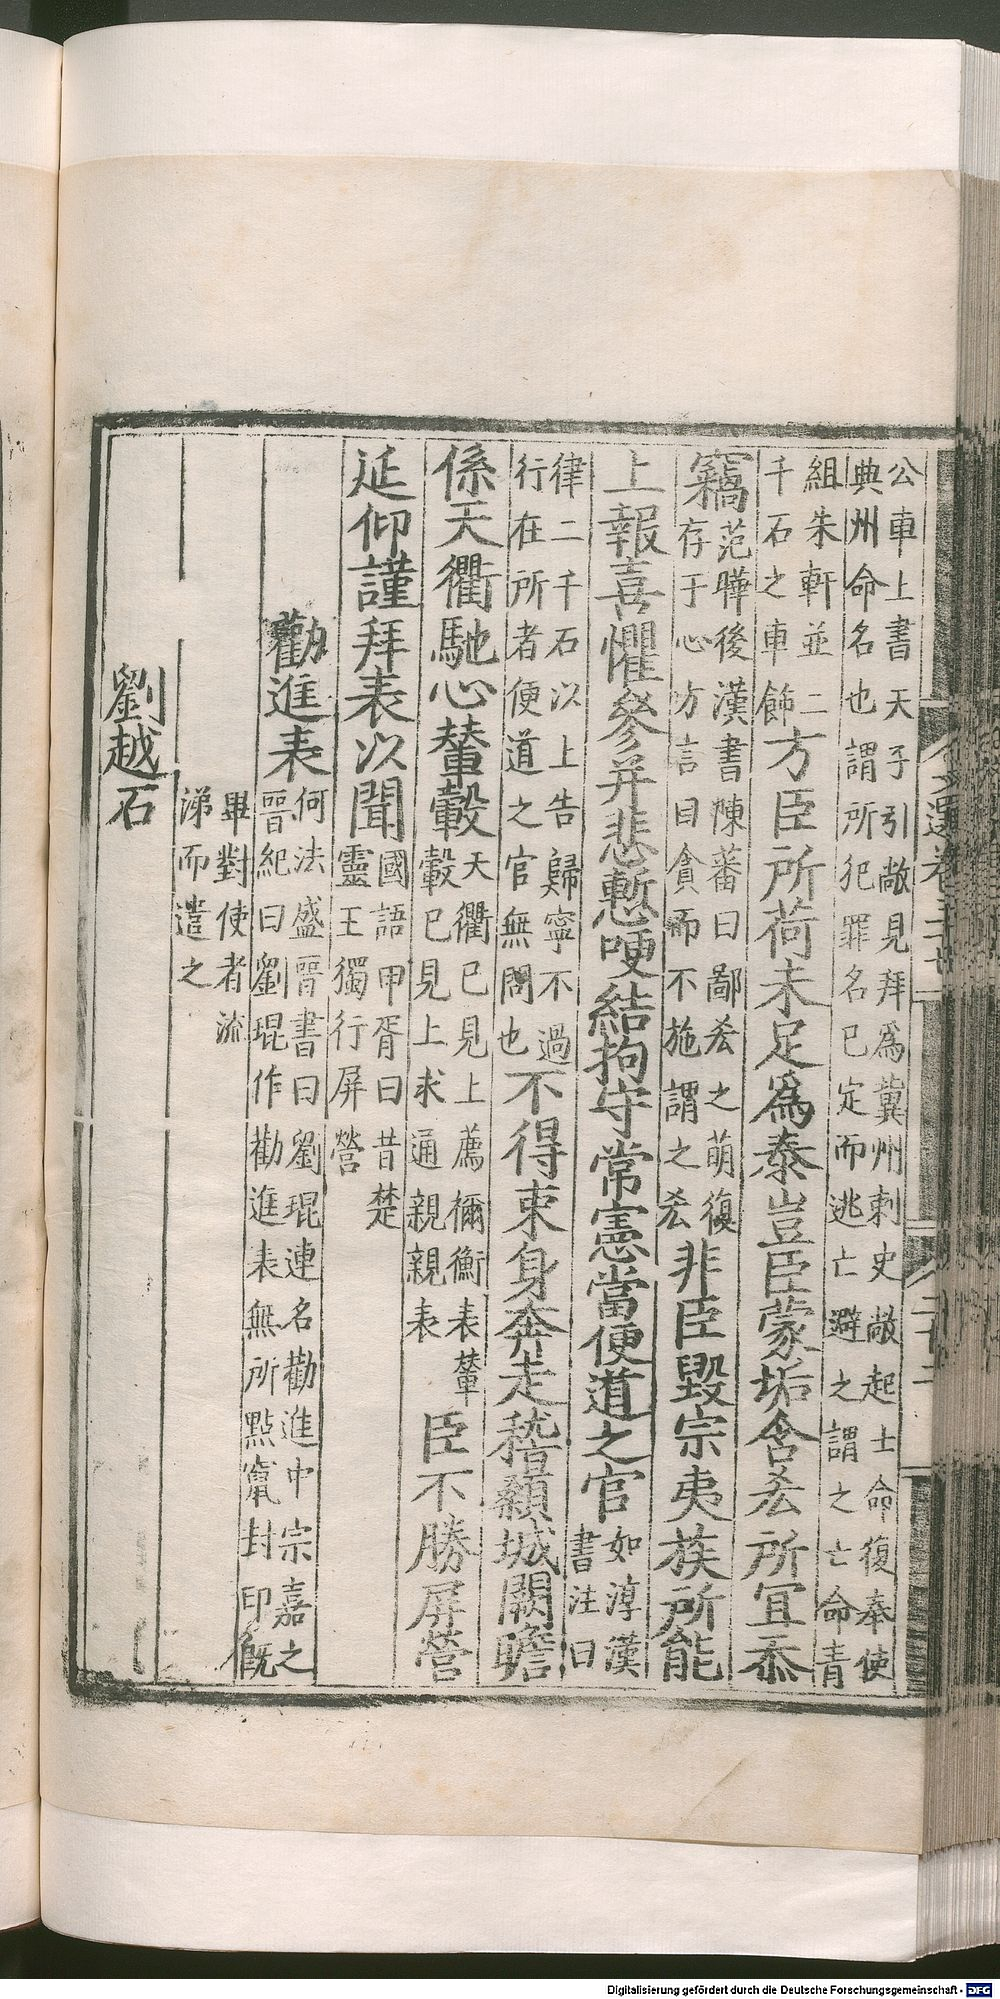 公車上書天子引敞見拜爲冀州刺史敞起士命復奉使
典州命名也謂所犯罪名已定而逃亡避之謂之亡命青
組朱軒並二
千石之車飾
方臣所荷未足爲泰豈臣蒙垢含㳒所宜忝
竊
范曄後漢書陳蕃曰鄙㳒之萌復
存于心方言曰貪而不施謂之㳒
非臣毀宗夷族所能
上報喜懼參并悲慙哽結拘守常憲當便道之官
如淳漢
書注曰
律二千石以上告歸寧不過
行在所者便道之官無問也
不得束身奔走稽顙城闕瞻
係天衢馳心輦轂
天衢已見上薦禰衡表輦
轂已見上求通親親表
臣不勝屏營
延仰謹拜表以聞
國語申胥曰昔楚
靈王獨行屏營
勸進表
何法盛晉書曰劉琨連名勸進中宗嘉之
晉紀曰劉琨作勸進表無所點竄封印旣
畢對使者流
涕而遣之
劉越石
文選卷三十七
二十二
Digitalisierung gefördert durch die Deutsche Forschungsgemeinschaft - DFG